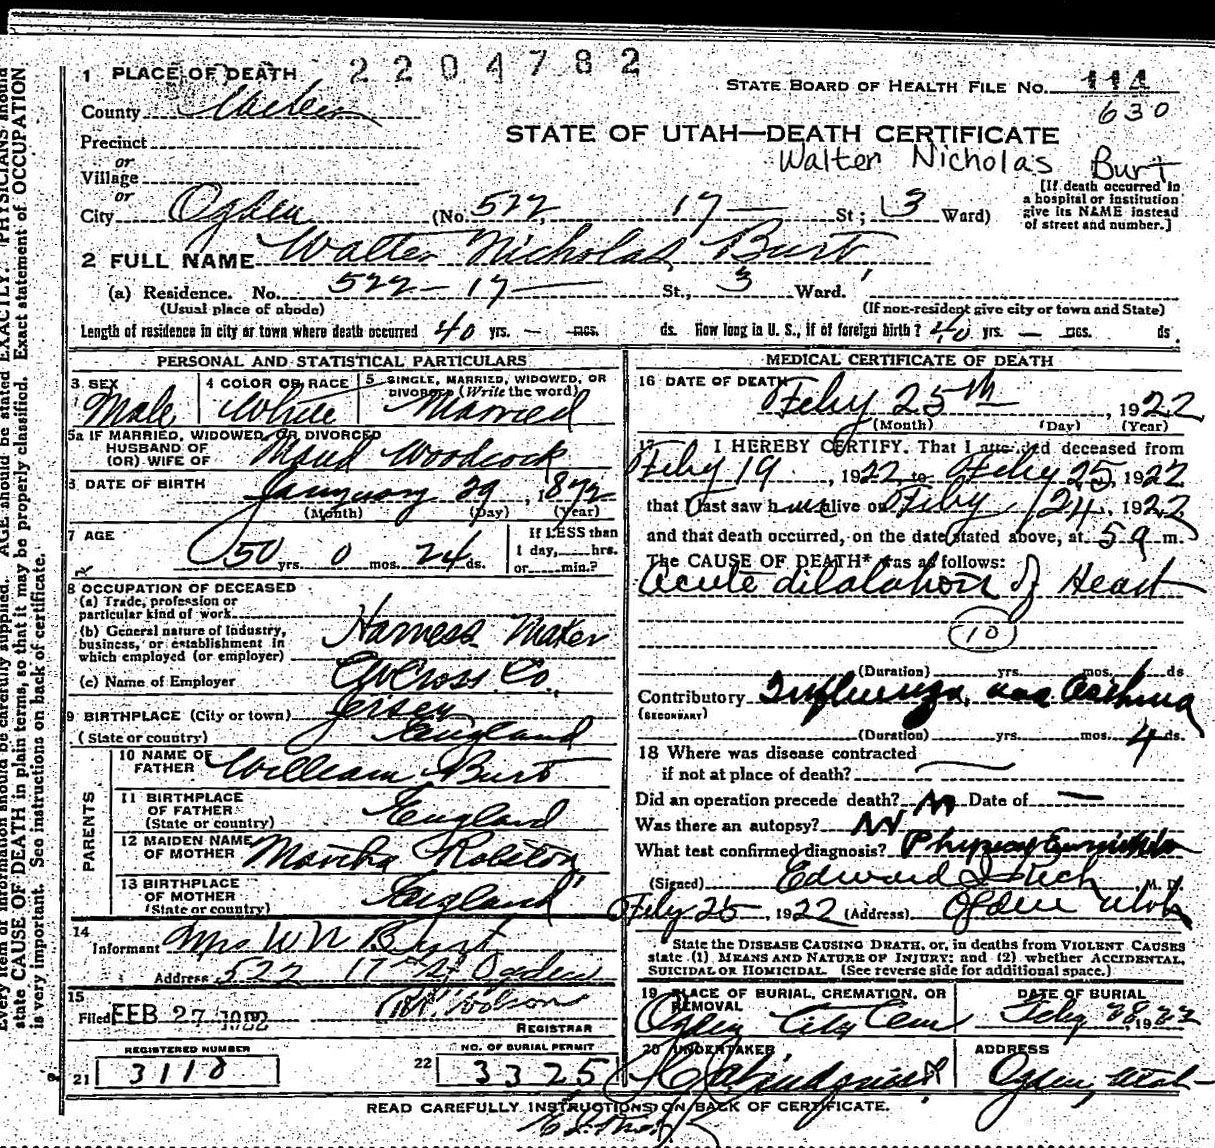 2204782
1 PLACE OF DEATH
STATE BOARD OF HEALTH FILE No. 114
County Weber
630
Precinct
STATE OF UTAH—DEATH CERTIFICATE
or
Walter Nicholas Burt
Village
or
City Ogden (No. 522 17 — St; 3 Ward)
[If death occurred in
a hospital or institution
give its NAME instead
of street and number.]
2 FULL NAME Walter Nicholas Burt
(a) Residence. No. 522 – 17 — St., 3 Ward.
(Usual place of abode) (If non-resident give city or town and State)
Length of residence in city or town where death occurred 40 yrs. — mos. ds. How long in U. S., if of foreign birth? 40 yrs. — mos. ds.
PERSONAL AND STATISTICAL PARTICULARS
3 SEX
Male
4 COLOR OR RACE
White
5 SINGLE, MARRIED, WIDOWED, OR
DIVORCED (Write the word)
Married
5a IF MARRIED, WIDOWED, OR DIVORCED
HUSBAND OF
(OR) WIFE OF Maud Woodcock
6 DATE OF BIRTH January 29, 1872
(Month) (Day) (Year)
7 AGE 50 yrs. 0 mos. 24 ds.
If LESS than
1 day,____hrs.
or____min.?
8 OCCUPATION OF DECEASED
(a) Trade, profession or
particular kind of work
(b) General nature of industry,
business, or establishment in
which employed (or employer) Harness Maker
(c) Name of Employer Cross Co.,
9 BIRTHPLACE (City or town) Jersey
(State or country) England
PARENTS
10 NAME OF
FATHER William Burt
11 BIRTHPLACE
OF FATHER
(State or country) England
12 MAIDEN NAME
OF MOTHER Martha
13 BIRTHPLACE
OF MOTHER
(State or country) England
14
Informant Mrs W N Burt
Address 522 17 St Ogden
15
Filed FEB 27 1922
REGISTRAR
REGISTERED NUMBER
21 3118
NO. OF BURIAL PERMIT
22 3325
MEDICAL CERTIFICATE OF DEATH
16 DATE OF DEATH Feby 25th, 1922
(Month) (Day) (Year)
17 I HEREBY CERTIFY, That I attended deceased from
Feby 19, 1922 to Feby 25, 1922
that I last saw him alive on Feby 24, 1922
and that death occurred, on the date stated above, at 5 a m.
The CAUSE OF DEATH* was as follows:
Acute dilatation of Heart
10
(Duration) yrs. mos. ds
Contributory Influenza, and Asthma
(SECONDARY)
(Duration) yrs. mos. 4 ds.
18 Where was disease contracted
if not at place of death?
Did an operation precede death? No Date of —
Was there an autopsy? No
What test confirmed diagnosis?
(Signed) Edward I Rich M. D.
Feby 25, 1922 (Address) Ogden Utah
State the DISEASE CAUSING DEATH, or, in deaths from VIOLENT CAUSES
state (1) MEANS AND NATURE OF INJURY; and (2) whether ACCIDENTAL,
SUICIDAL OR HOMICIDAL. (See reverse side for additional space.)
19 PLACE OF BURIAL, CREMATION, OR
REMOVAL
Ogden City Cem
DATE OF BURIAL
Feby 28, 1922
20 UNDERTAKER
ADDRESS
Ogden, Utah
READ CAREFULLY INSTRUCTIONS ON BACK OF CERTIFICATE.
Every item of information should be carefully supplied. AGE should be stated EXACTLY. PHYSICIANS should
state CAUSE OF DEATH in plain terms, so that it may be properly classified. Exact statement of OCCUPATION
is very important. See instructions on back of certificate.